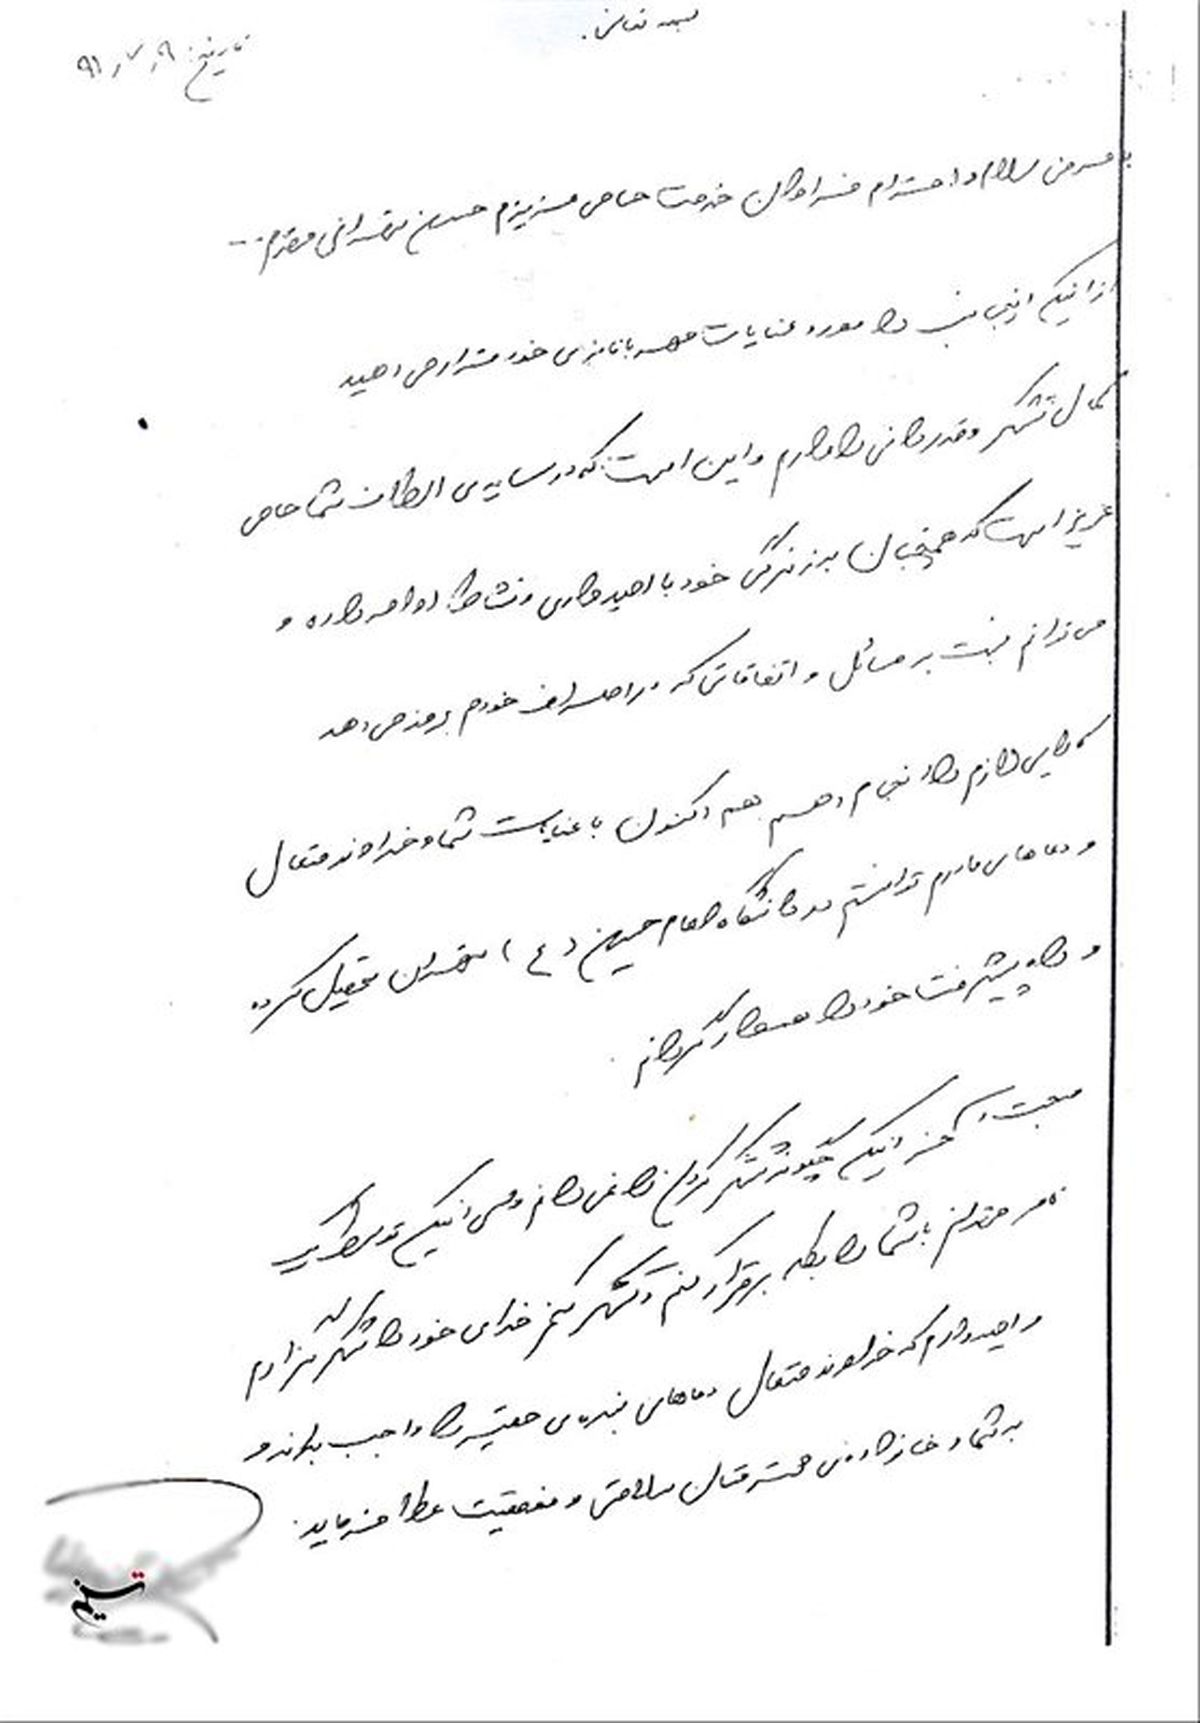 بسمه تعالی.
تاریخ: ۹۱/۷/۹
با عرض سلام و احترام فراوان خدمت حامی عزیزم حسن تهرانی مقدم...
از اینکه اینجانب را مورد عنایات مهربانانه‌ی خود قرار می‌دهید
کمال تشکر و قدردانی را دارم و این است که در سایه‌ی الطاف شما حامی
عزیز است که همچنان به زندگی خود با امیدواری و نشاط ادامه داده و
می‌توانم نسبت به مسائل و اتفاقاتی که در اطراف خودم بروز می‌دهد
کارایی لازم را انجام دهم هم اکنون با عنایت شما و خداوند متعال
و دعاهای مادرم توانستم در دانشگاه امام حسین (ع) تهران تحصیل کرده
و راه پیشرفت خود را هموار گردانم.
چگونه تشکر کردن را نمی‌دانم ولی از اینکه توسط این
نامه می‌توانم با شما رابطه برقرار کنم و تشکر کنم خدای خود را شکر گزارم
و امیدوارم که خداوند متعال دعاهای بنده‌ی حقیر را واجب بداند و
به شما و خانواده‌ی محترمتان سلامتی و موفقیت عطا فرماید.
تسنیم